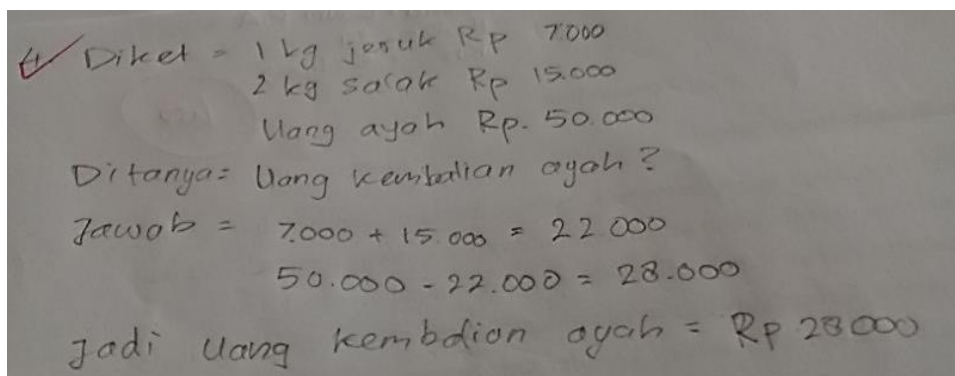 4. Diket = 1 kg jeruk Rp 7.000
2 kg salak Rp 15.000
Uang ayah Rp. 50.000
Ditanya = Uang kembalian ayah?
Jawab = 7.000 + 15.000 = 22.000
50.000 - 22.000 = 28.000
Jadi uang kembalian ayah = Rp 28.000